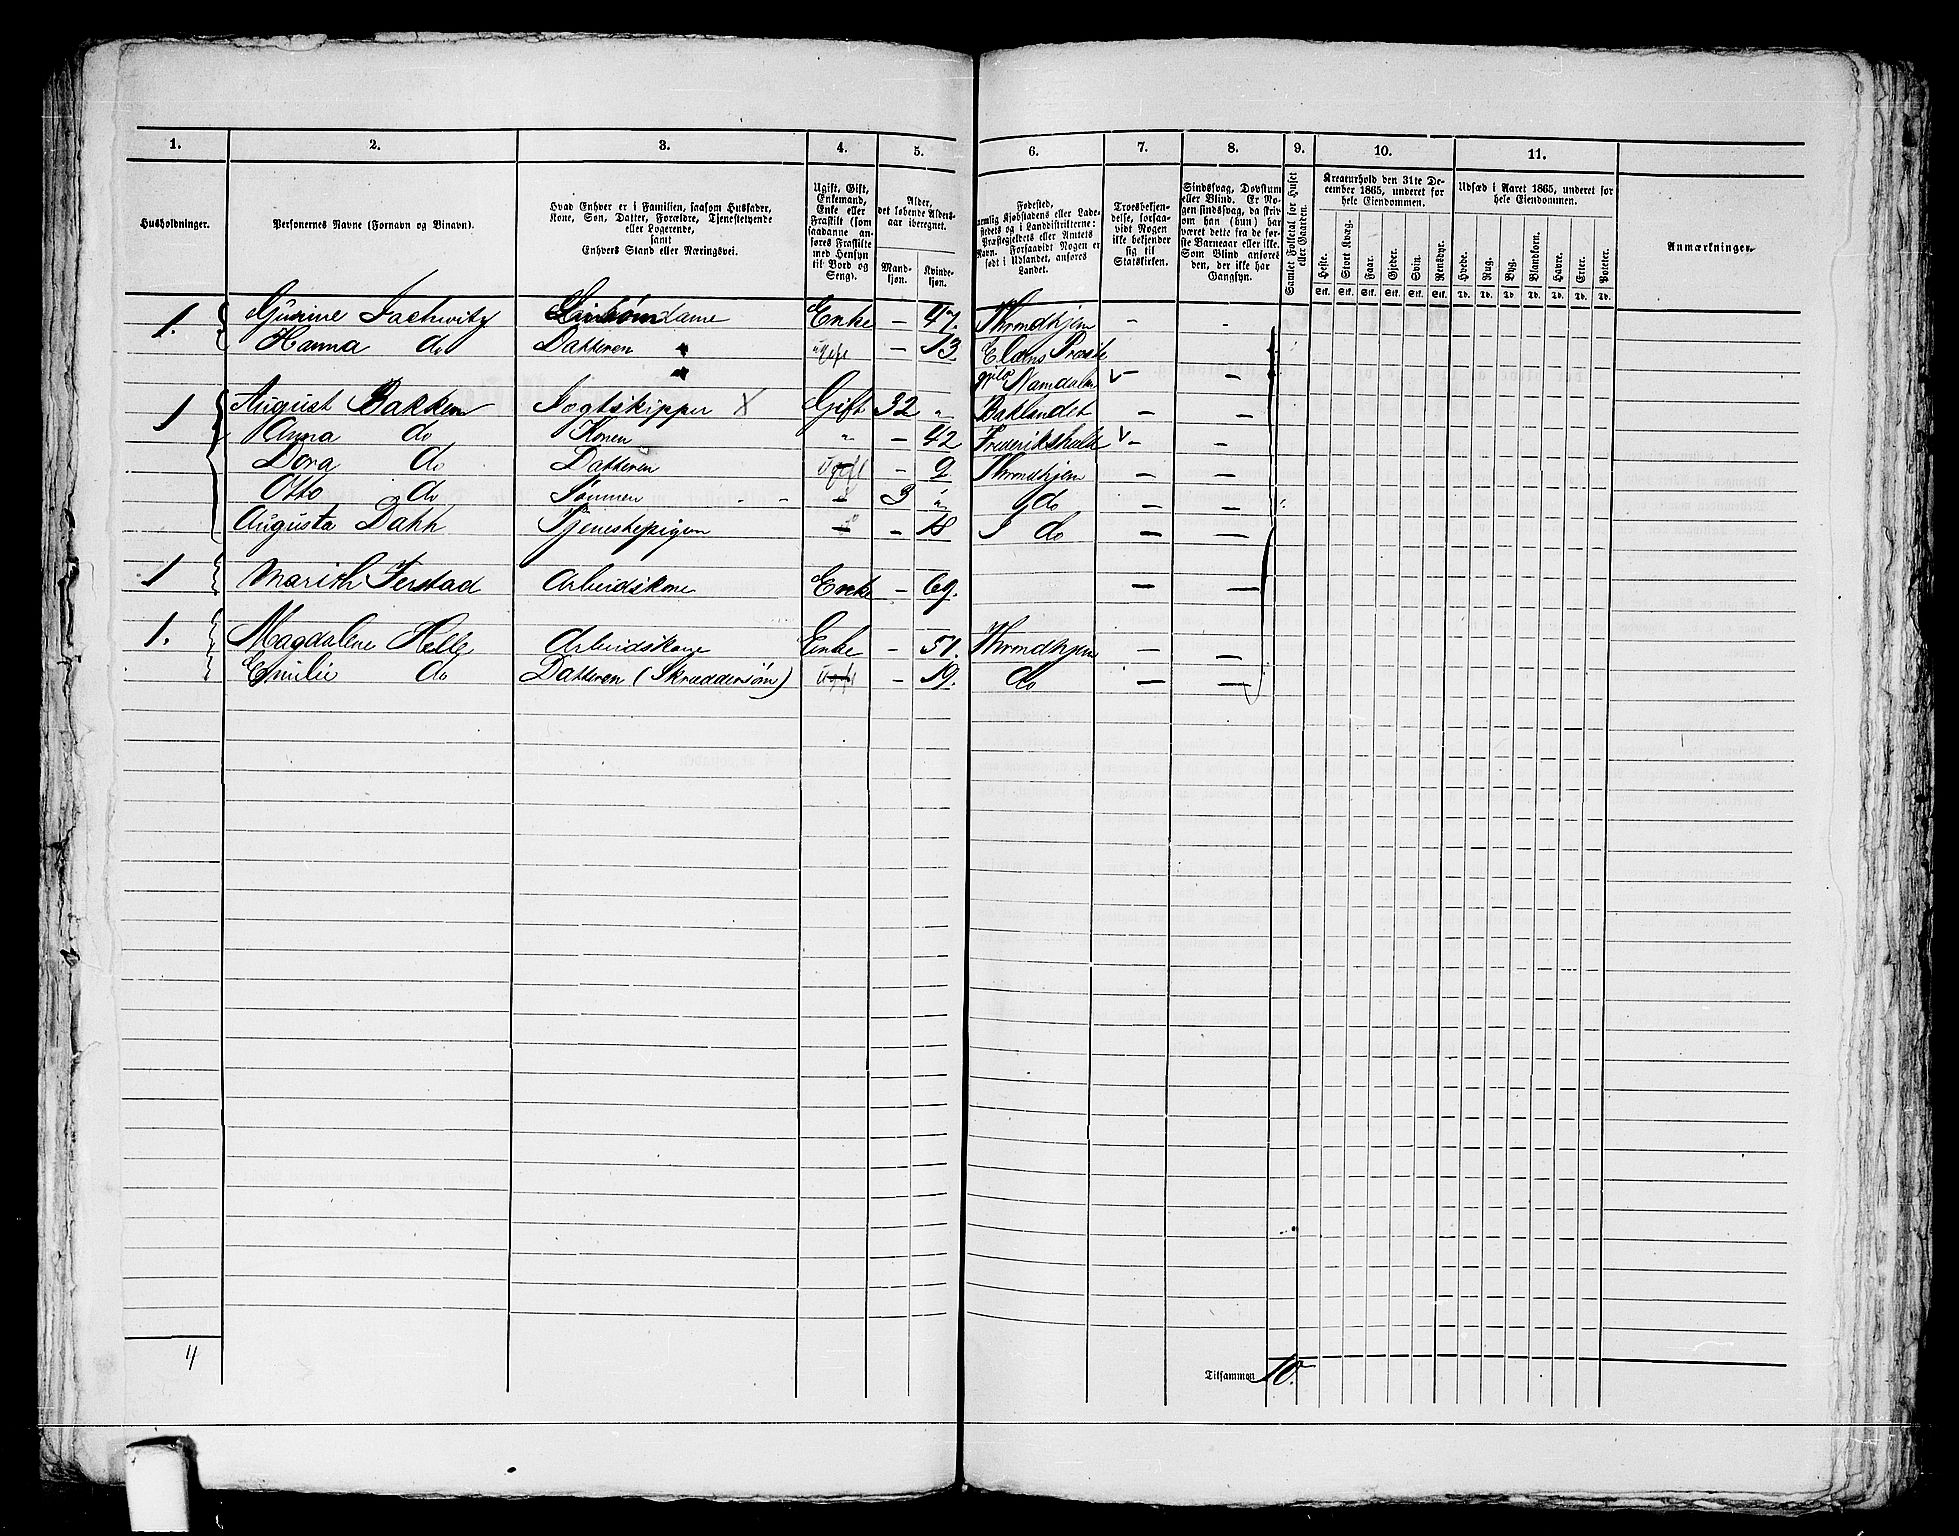 1. 2. 3. 4. 5. 6. 7. 8. 9. 10. 11.
Husholdninger.
Personernes Navne (Fornavn og Binavn).
Hvad Enhver er i Familien, saasom Husfader,
Kone, Søn, Datter, Forældre, Tjenestetyende
eller Logerende,
samt
Enhvers Stand eller Næringsvei.
Ugift, Gift,
Enkemand,
Enke eller
Fraskilt (som
saadanne an-
føres Fraskilte
med Hensyn
til Bord og
Seng).
Alder,
det løbende Alders-
aar iberegnet.
Mand-
kjøn.
Kvinde-
kjøn.
Fødested,
nemlig Kjøbstadens eller Lade-
stedets og i Landdistrikterne:
Præstegjeldets eller Amtets
Navn. Forsaavidt Nogen er
født i Udlandet, anføres
Landet.
Troesbekjen-
delse, forsaa-
vidt Nogen
ikke bekjender
sig til
Statskirken.
Sindssvag, Døvstum
eller Blind. Er No-
gen sindssvag, da skriv
om han (hun) har
været dette fra de før-
ste Barneaar eller ikke.
Som Blind anføres
den, der ikke har
Gangsyn.
Samlet Folketal for Huset
eller Gaarden.
Kreaturhold den 31te De-
cember 1865, underet for
hele Eiendommen.
Heste. Stort Kvæg. Faar. Gjeder. Svin. Rensdyr.
Stk. Stk. Stk. Stk. Stk. Stk.
Udsæd i Aaret 1865, underet for
hele Eiendommen.
Hvede. Rug. Byg. Blandkorn. Havre. Erter. Poteter.
Td. Td. Td. Td. Td. Td. Td.
Anmærkninger.
1. Gurine Enke – 47. Throndhjem – –
Hanna do Datteren " ugift – 13. Præste
gjeld Namdalen – –
1 August Bakken Jagtskipper X Gift 32 " Baklandet – –
Anna do Konen " – 42 Frederikshald – –
Dora do Datteren Ugift – 9 Throndhjem – –
Otto do Sønnen 3 " do – –
Augusta Dahl Tjenestepigen – 18 do – –
1 Marith Ferstad Arbeidskone Enke – 69. – –
1. Magdalene Helle Arbeidskone Enke – 51. Throndhjem – –
Emilie do Datteren (Skræddersøm) Ugift – 19. do – –
4
Tilsammen 10.